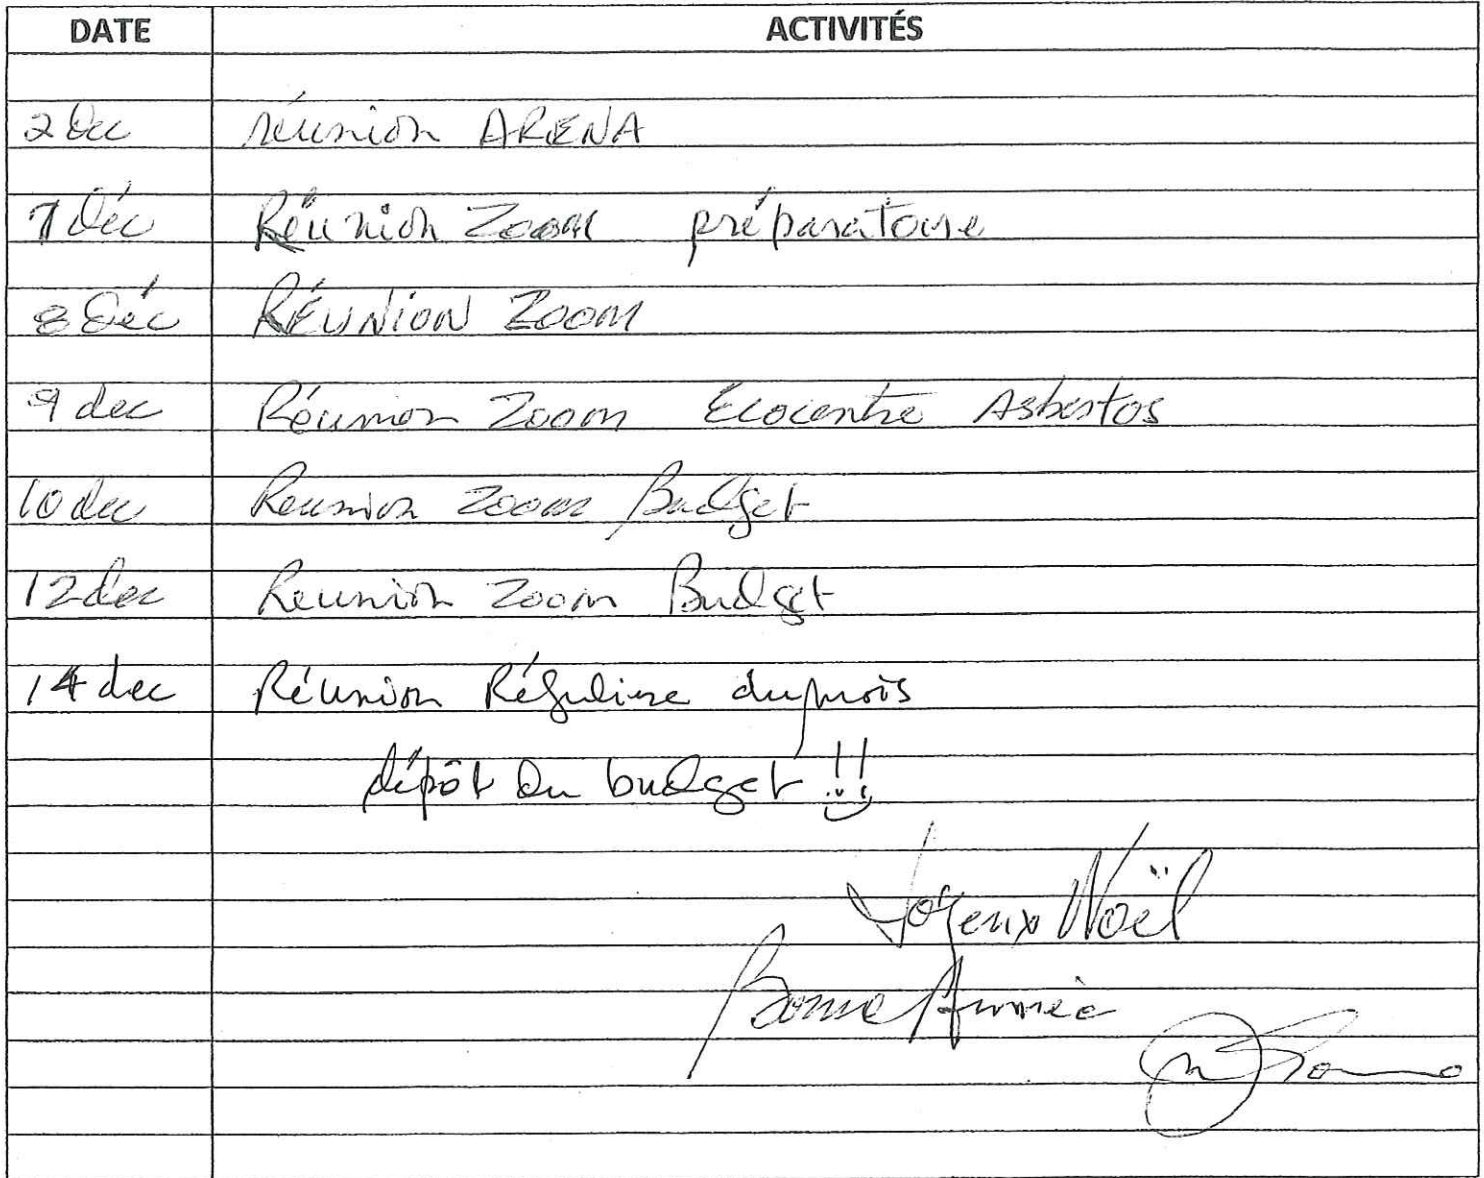 DATE ACTIVITÉS
2 Dec réunion ARENA
7 Déc Réunion Zoom préparatoire
8 Déc RÉUNION ZOOM
9 dec Réunion Zoom Ecocentre Asbestos
10 dec Reunion Zoom Budget
12 dec Reunion Zoom Budget
14 dec Réunion Régulière du mois
dépôt du budget !!
Joyeux Noël
Bonne Année